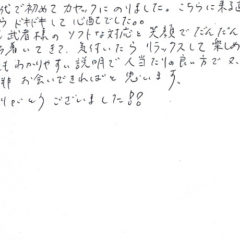 代で初めてカヤックにのりました。こちらに来る
らドキドキして心配でした。。
武者様のソフトな対応と笑顔でだんだん
着いてきて、気付いたらリラックスして楽しめ
もわかりやすい説明で人当たりの良い方でス
非お会いできればと思います。
りがとうございました!!